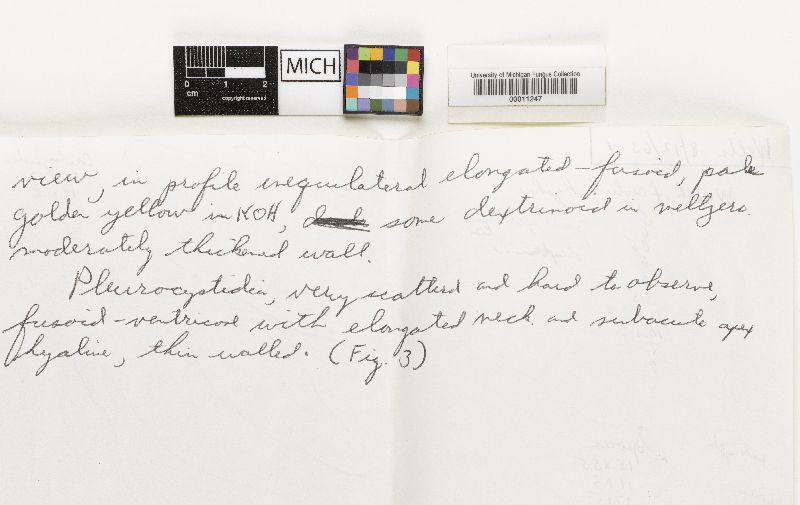 0 1 2
cm
copyright reserved
MICH
University of Michigan Fungus Collection
00011247
view, in profile inequilateral elongated-fusoid, pale
golden yellow in KOH, some dextrinoid in meltzers.
moderately thickened wall.
Pleurocystidia, very scatterd and hard to observe,
fusoid-ventricose with elongated neck and subacute apex
hyaline, thin walled. (Fig. 3)